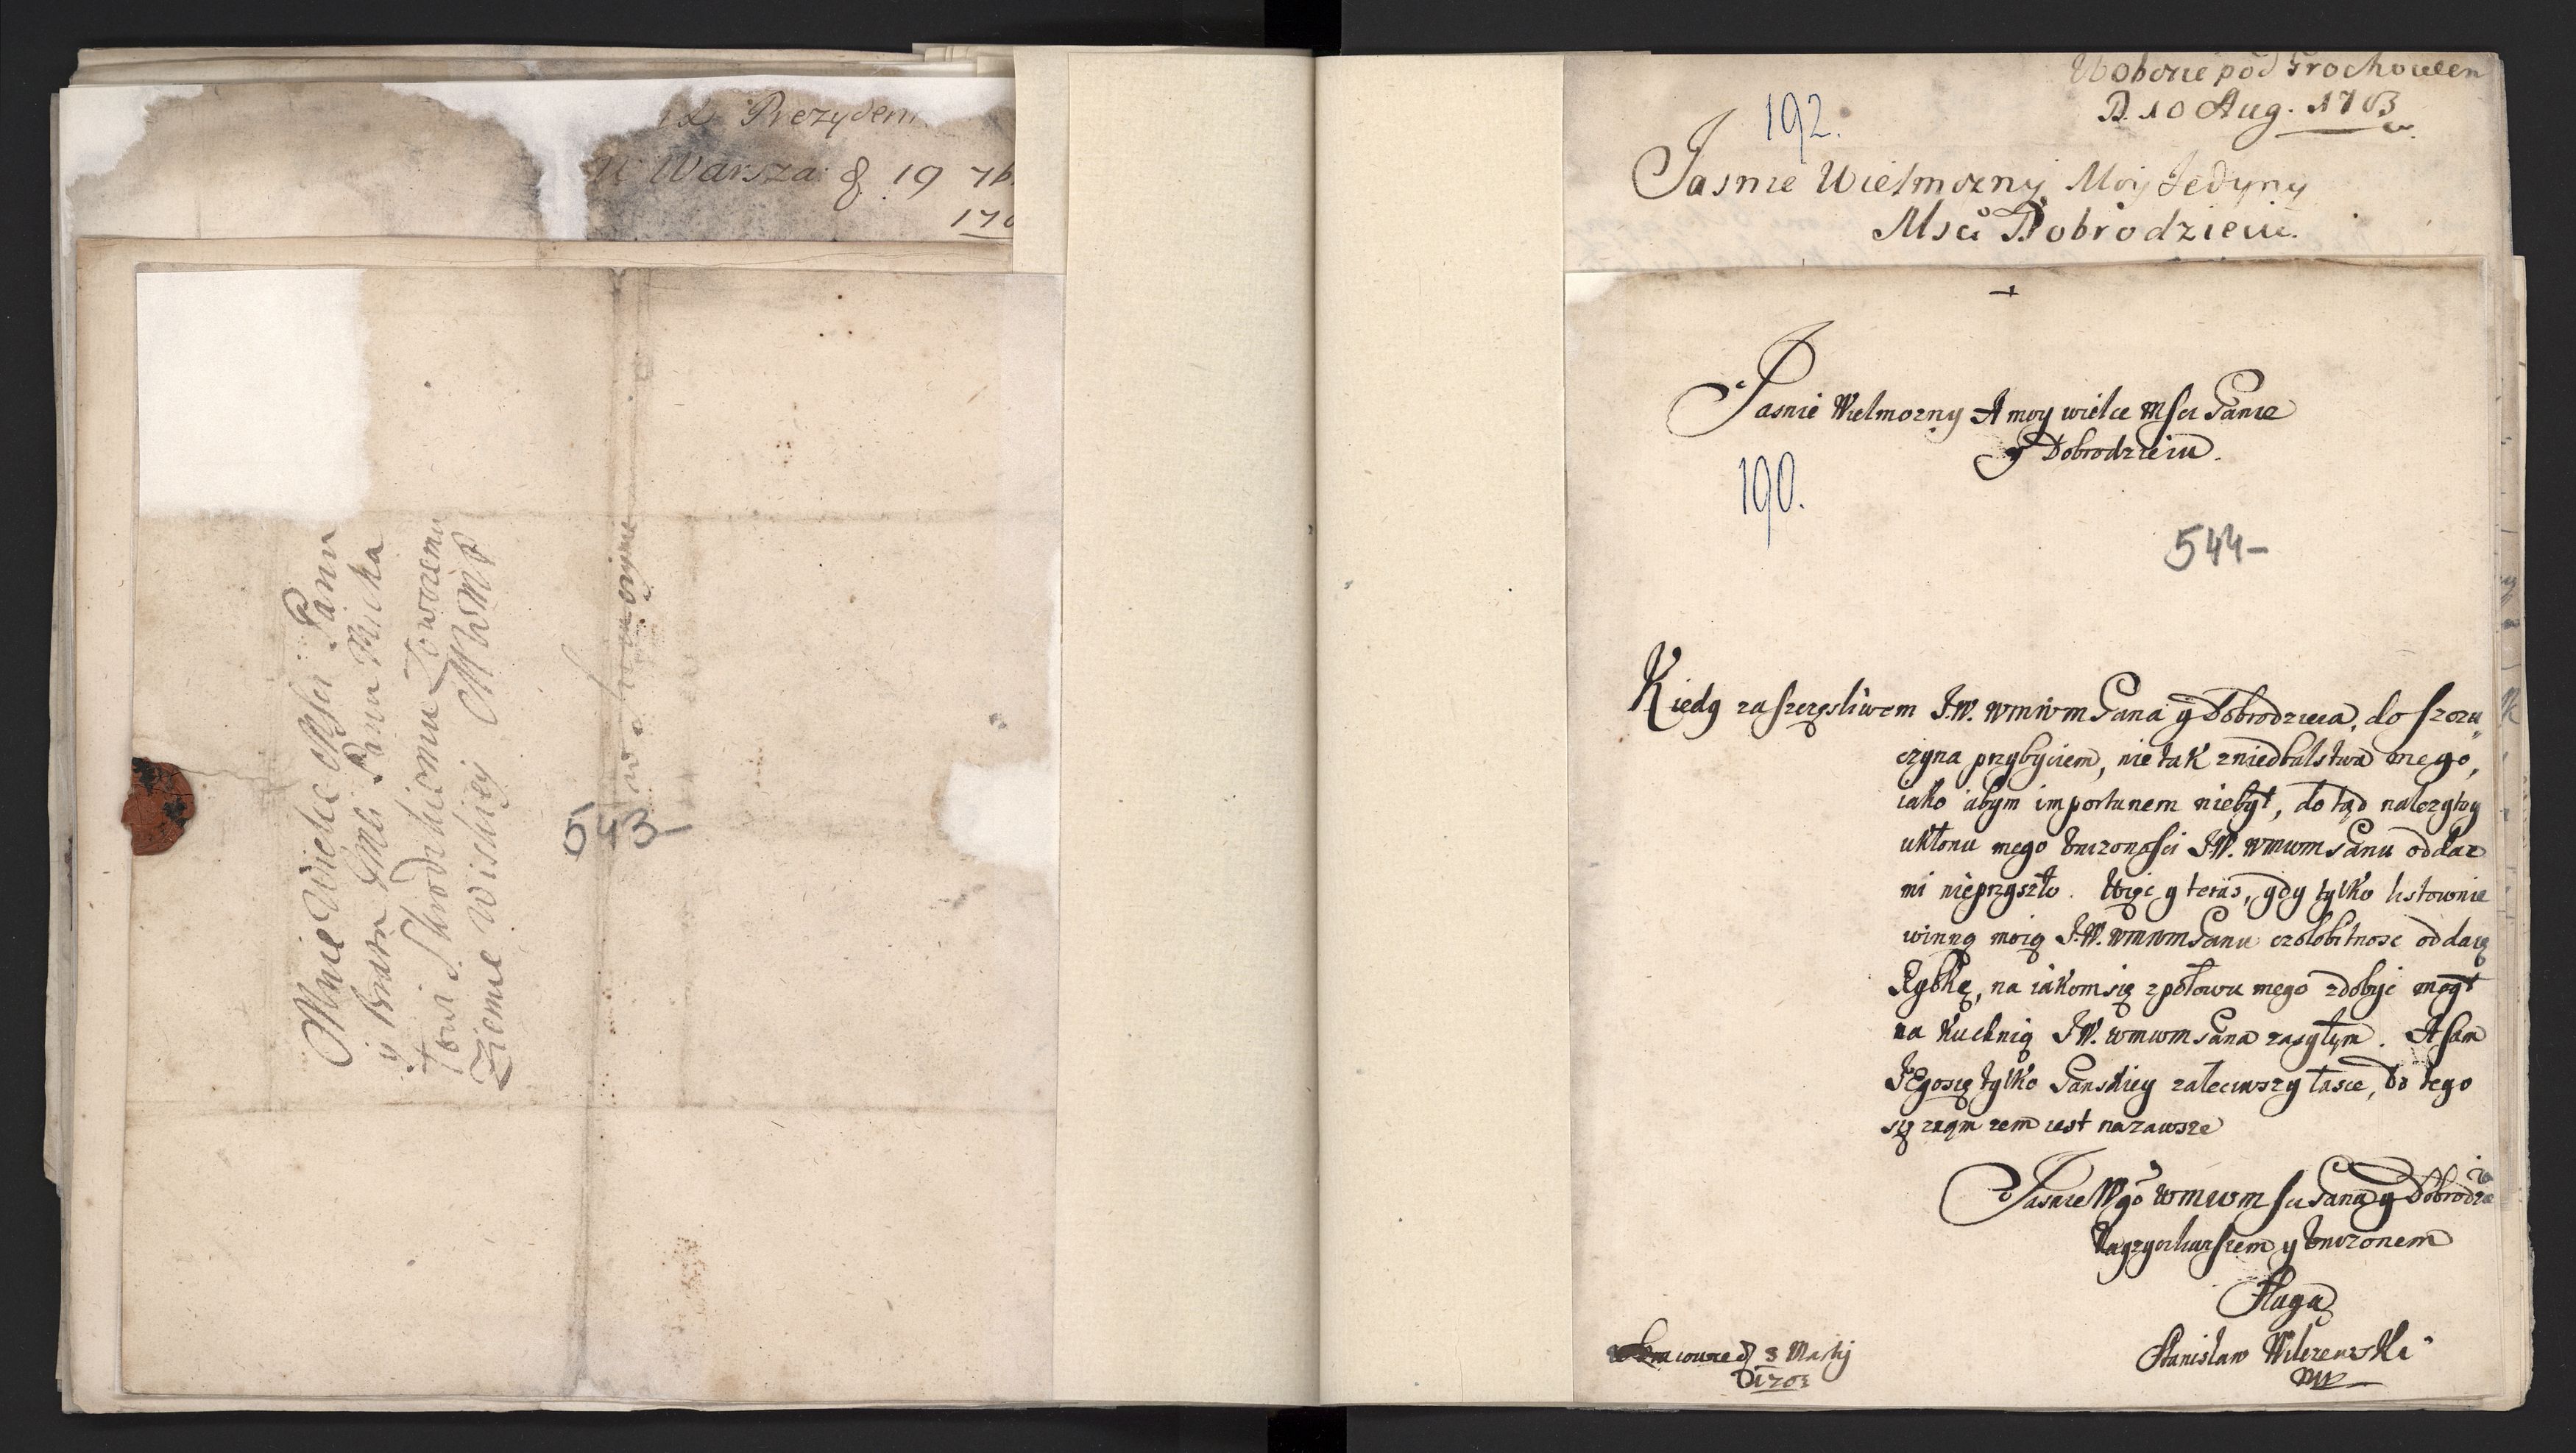 Prezydem
W Warsza: 8 19 7b.
170
Mnie Wielce Msci Panu
y Bratu Jmci Panu Micha
łowi Skrodzkiemu Łowczemu
Ziemie Wiskiey MMWMP
543-
W oborze pod Grochowem
D. 10 Aug. 1703
192.
Jasnie Wielmozny Moy Jedyny
Msci Dobrodzieiu.
Jasnie Wielmozny A moy wielce Msci Panie
y Dobrodzieiu.
190.
544-
Kiedy za szczęsliwem J.W. WMWMPana y Dobrodzieia, do Szczu
czyna przybyciem, nie tak z niedbalstwa mego,
iako abym importunem niebył, do tąd nalezytey
ukłonu mego unizonosci J.W. WMWMPanu oddac
mi nieprzyszło. Więc y teras, gdy tylko listownie
winną moią J.W. WMWMPanu czołobitnosc oddaię
Rybkę, na iakom się z połowu mego zdobyc mogł
na kuchnią J.W. WMWMPana zasyłam. A sam
Jego się tylko Panskiey zaleciwszy łasce, do tego
się znam zem iest nazawsze
Jasnie Wgo WMWMsci Pana y Dobrodzie
ia
Nayzyczliwszem y unizonem
Sługą
Stanisław Wilczewski
mp
d 8 Martij
1703